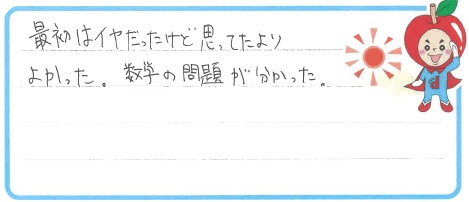 最初はイヤだったけど思ってたより
よかった。数学の問題が分かった。